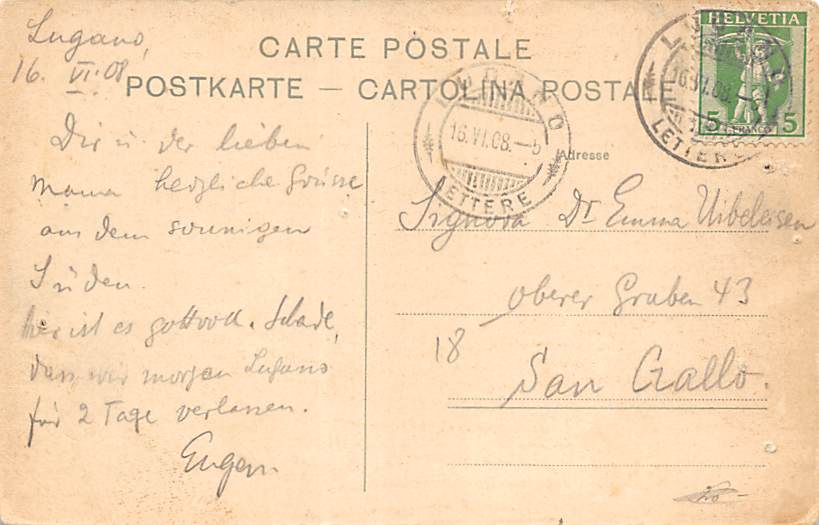 Lugano,
16. VI. 08
CARTE POSTALE
POSTKARTE — CARTOLINA POSTALE
HELVETIA
5 FRANCO 5
LUGANO
16.VI.08.
LETTERE
LUGANO
16.VI.08.—6
LETTERE
Adresse
Dir u der lieben
Mama herzliche Grüsse
aus dem sonnigen
Süden.
hier ist es gottvoll. Schade,
dass wir morgen Lugano
für 2 Tage verlassen.
Eugen
Signora Dr Emma
Oberer Graben 43
18
San Gallo.